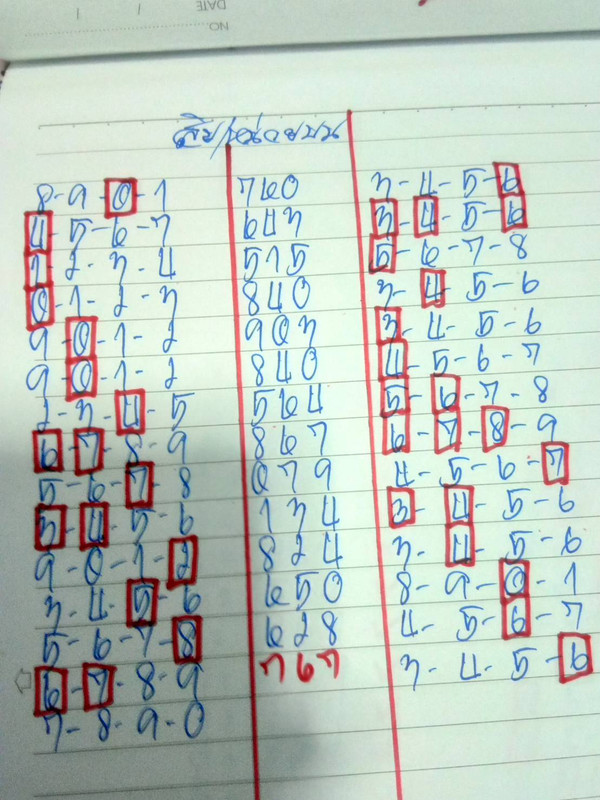 NO.
DATE / /
สิบ/หน่วยบน
8-9-0-1 760 3-4-5-6
4-5-6-7 643 3-4-5-6
1-2-3-4 515 5-6-7-8
0-1-2-3 840 3-4-5-6
9-0-1-2 903 3-4-5-6
9-0-1-2 840 4-5-6-7
2-3-4-5 564 5-6-7-8
6-7-8-9 867 6-7-8-9
5-6-7-8 079 4-5-6-7
3-4-5-6 134 3-4-5-6
9-0-1-2 824 3-4-5-6
3-4-5-6 650 8-9-0-1
5-6-7-8 628 4-5-6-7
6-7-8-9 767 3-4-5-6
7-8-9-0